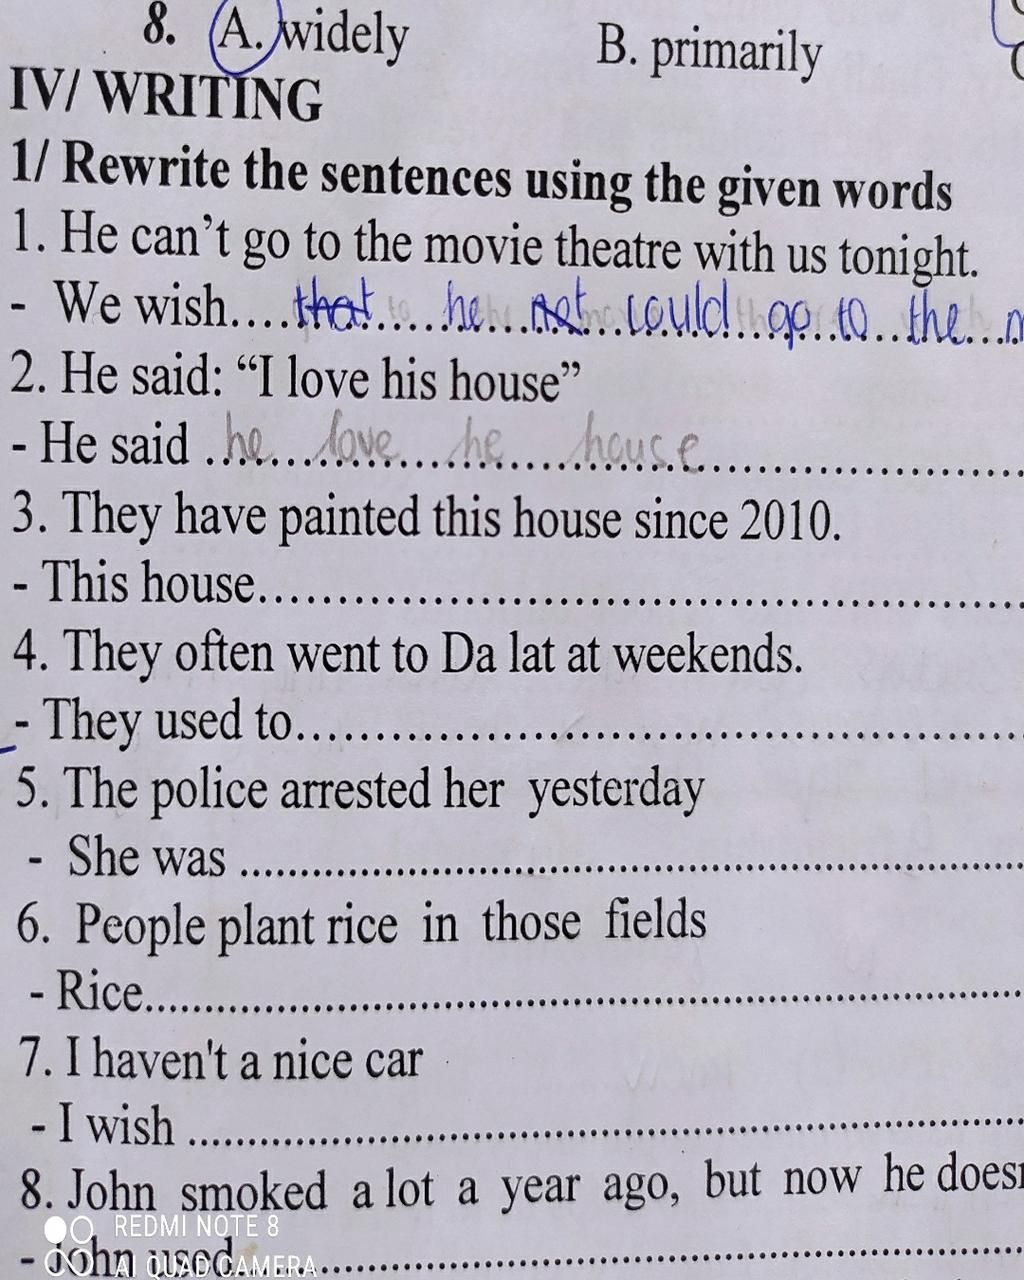 8. A. widely B. primarily
IV/ WRITING
1/ Rewrite the sentences using the given words
1. He can't go to the movie theatre with us tonight.
- We wish....that....he...not...could...go...to...the...
2. He said: “I love his house”
- He said ....he love he house....
3. They have painted this house since 2010.
- This house....
4. They often went to Da lat at weekends.
- They used to....
5. The police arrested her yesterday
- She was ....
6. People plant rice in those fields
- Rice....
7. I haven't a nice car
- I wish ....
8. John smoked a lot a year ago, but now he does
- John used....
REDMI NOTE 8
AI QUAD CAMERA